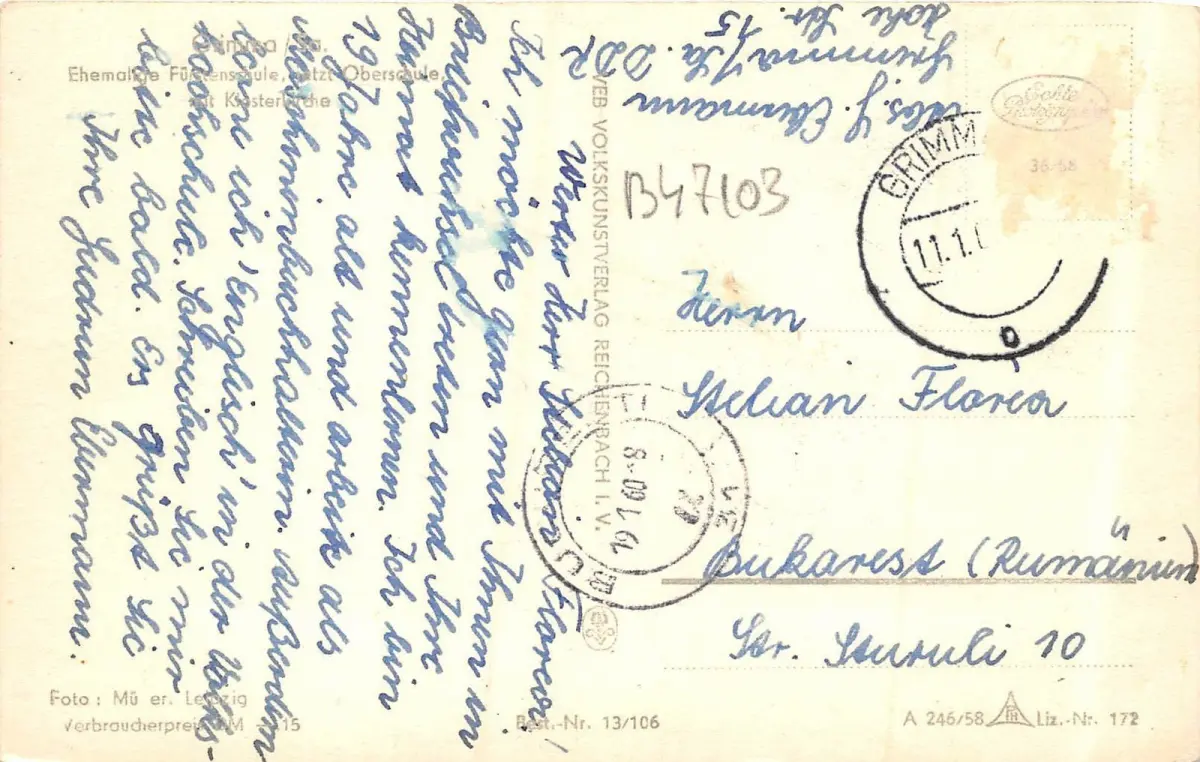 Grimma / Sa.
Ehemalige Fürstenschule, jetzt Oberschule
mit Klosterkirche
Werter Herr Stelian Florea!
Ich möchte gern mit Ihnen in
Briefwechsel treten und Ihre
Heimat kennenlernen. Ich bin
19 Jahre alt und arbeite als
Maschinenbuchhalterin. Außerdem
lerne ich 'Englisch' in der Volks-
hochschule. Schreiben Sie mir
bitte bald. Es grüßt Sie
Ihre Gudrun Ehrmann.
Foto: Müller, Leipzig
Verbraucherpreis DM 0,15
Best.-Nr. 13/106
VEB VOLKSKUNSTVERLAG REICHENBACH I. V.
Abs. G. Ehrmann
Grimma/Sa. DDR
Hohe Str. 15
Echte
36/58
GRIMM
11.1.
B47103
Herrn
Stelian Florea
Bukarest (Rumänien)
Str. Sturuli 10
A 246/58
Liz.-Nr. 172